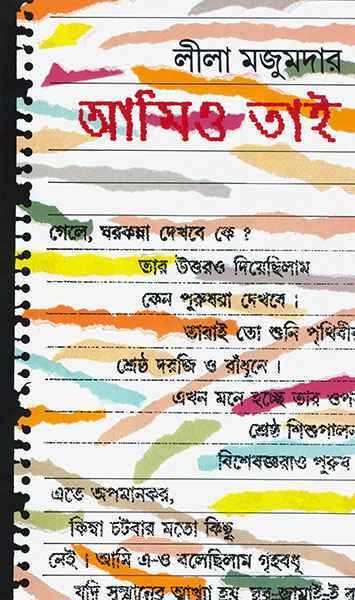 লীলা মজুমদার
আমিও তাই
গেলে, ঘরকন্না দেখবে কে ?
তার উত্তরও দিয়েছিলাম
কেন পুরুষরা দেখবে।
তারাই তো শুনি পৃথিবীর
শ্রেষ্ঠ দরজি ও রাঁধুনে।
এখন মনে হচ্ছে তার ওপর
শ্রেষ্ঠ শিশুপালন
বিশেষজ্ঞরাও পুরুষ
এতে অপমানকর,
কিম্বা চটবার মতো কিছু
নেই। আমি এ-ও বলেছিলাম গৃহবধূ
যদি সম্মানের আখ্যা হয়, ঘর-জামাই-ই বা